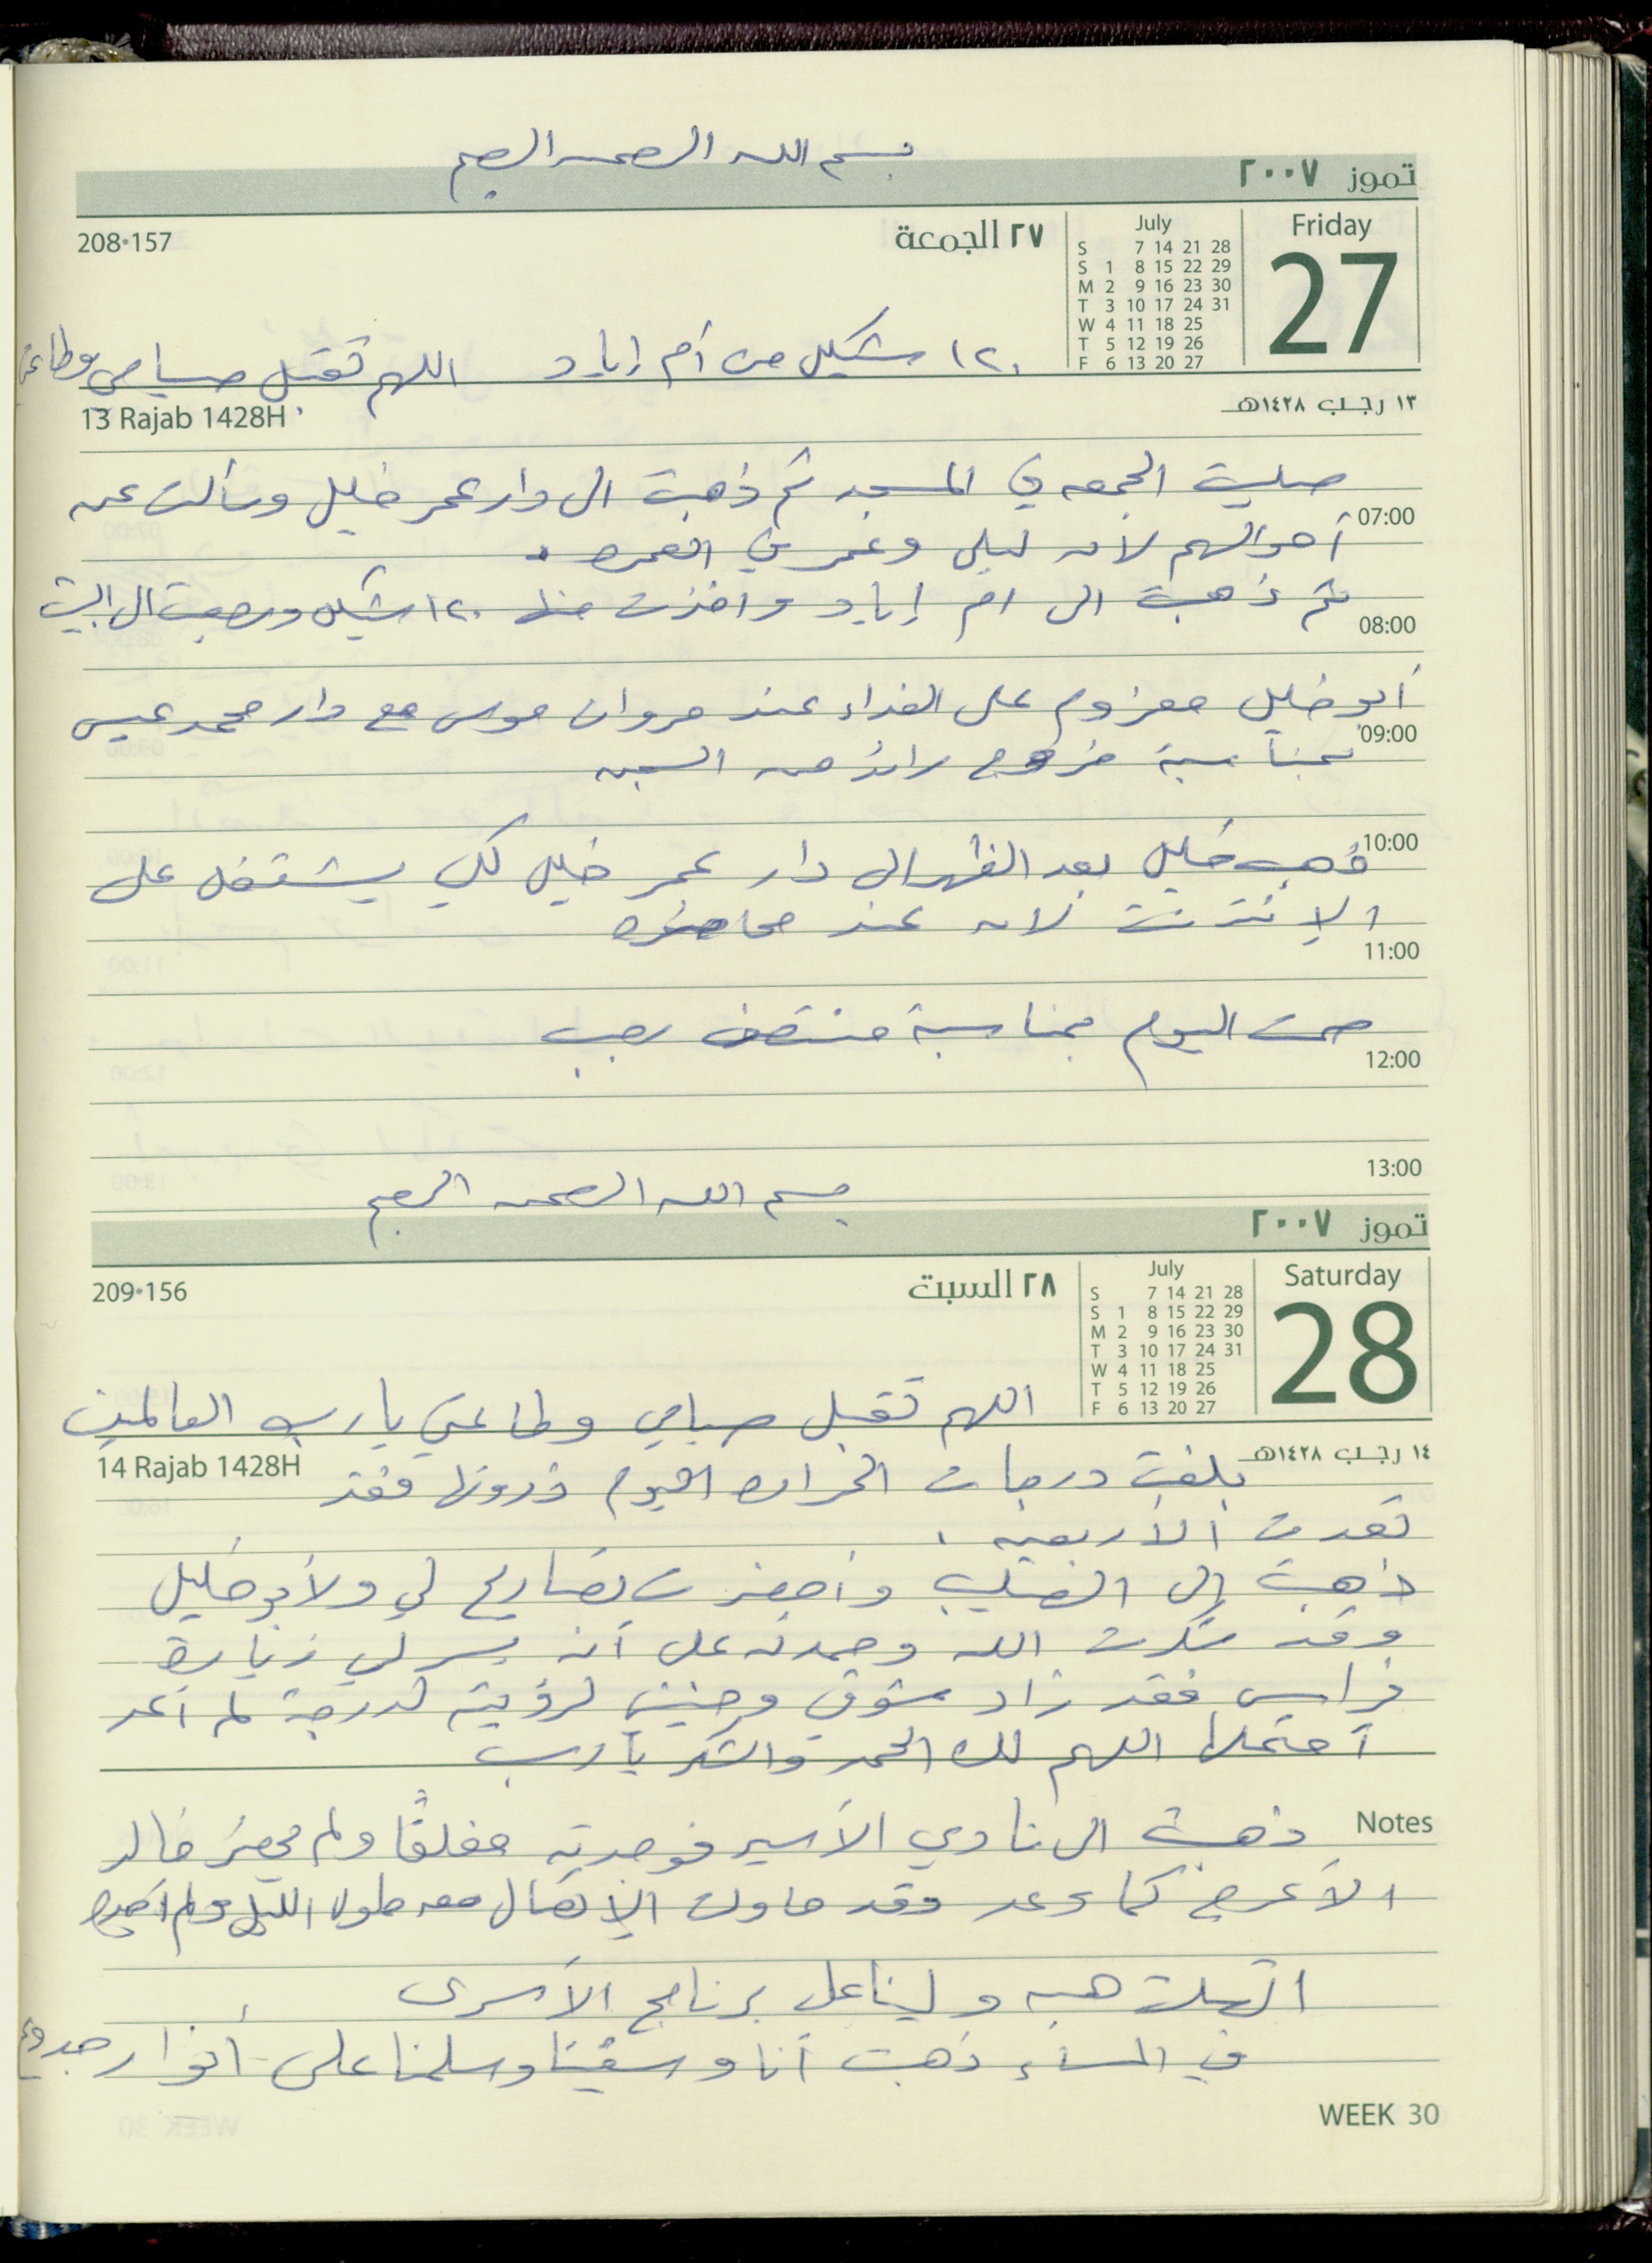 بسم الله الرحمن الرحيم
تموز ٢٠٠٧
Friday
27
July
S 7 14 21 28
S 1 8 15 22 29
M 2 9 16 23 30
T 3 10 17 24 31
W 4 11 18 25
T 5 12 19 26
F 6 13 20 27
٢٧ الجمعة
208•157
١٢٠ شيكل من أم إياد اللهم تقبل صيامي وطاعتي
١٣ رجب ١٤٢٨هـ
13 Rajab 1428H
صليت الجمعه في المسجد ثم ذهبت الى دار عمر خليل وسألت عن
07:00
أحوالهم لأن ليلى وعمر في العمره .
ثم ذهبت الى ام إياد واخذت منها ١٢٠ شيكل ورجعت الى البيت
08:00
أبو خليل معزوم على الغداء عند مروان موسى مع دار محمد عيسى
09:00
بمناسبة خروج رائد من السجن
10:00
ذهب خليل بعد الظهر الى دار عمر خليل لكي يشتغل على
الإنترنت لأن عنده محاضره
11:00
صمت اليوم بمناسبة منتصف رجب
12:00
13:00
بسم الله الرحمن الرحيم
تموز ٢٠٠٧
Saturday
28
July
S 7 14 21 28
S 1 8 15 22 29
M 2 9 16 23 30
T 3 10 17 24 31
W 4 11 18 25
T 5 12 19 26
F 6 13 20 27
٢٨ السبت
209•156
اللهم تقبل صيامي وطاعتي يا رب العالمين
١٤ رجب ١٤٢٨هـ
14 Rajab 1428H
بلغت درجات الحراره اليوم ذروتها فقد
تعدت الأربعين .
ذهبت إلى الصليب وأحضرت تصاريح لي ولأبو خليل
وقد شكرت الله وحمدته على أنه يسر لي زيارة
فراس فقد زاد شوقي وحنيني لرؤيته لدرجة لم أعد
أحتملها اللهم لك الحمد والشكر يا رب
Notes
ذهبت الى نادي الأسير فوجدته مغلقًا ولم يحضر خالد
الأعرج كما وعد وقد حاولت الإتصال معه طوال الليل ولم
اتصلت هبه ولينا على برنامج الأسرى
في المساء ذهبت أنا و وسلمنا على أنوار
WEEK 30